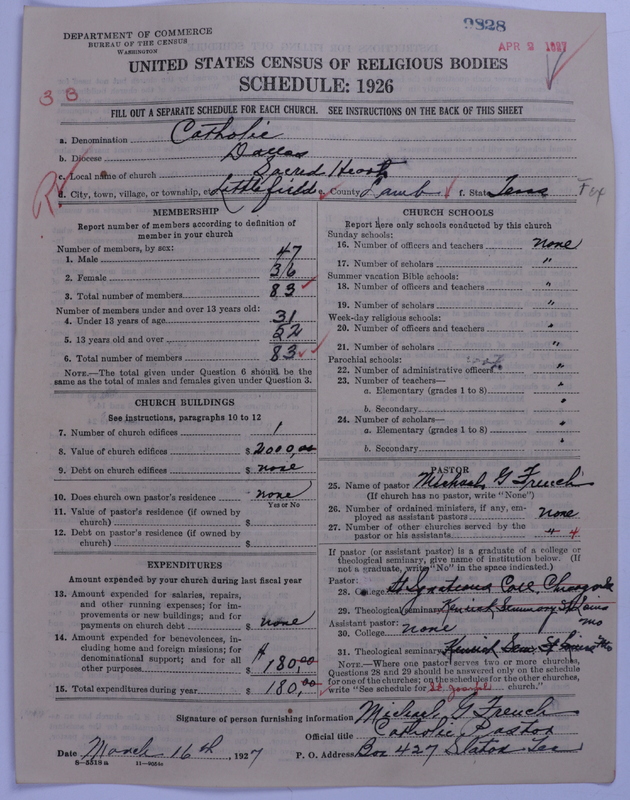 DEPARTMENT OF COMMERCE
BUREAU OF THE CENSUS
WASHINGTON
9828
APR 2 1927
UNITED STATES CENSUS OF RELIGIOUS BODIES
SCHEDULE: 1926
3 B
FILL OUT A SEPARATE SCHEDULE FOR EACH CHURCH. SEE INSTRUCTIONS ON THE BACK OF THIS SHEET
a. Denomination Catholic
b. Diocese Dallas
c. Local name of church Sacred Heart
d. City, town, village, or township, etc. Littlefield e. County Lamb f. State Texas Tex
MEMBERSHIP
Report number of members according to definition of
member in your church
Number of members, by sex:
1. Male 47
2. Female 36
3. Total number of members 83
Number of members under and over 13 years old:
4. Under 13 years of age 31
5. 13 years old and over 52
6. Total number of members 83
NOTE.—The total given under Question 6 should be the
same as the total of males and females given under Question 3.
CHURCH BUILDINGS
See instructions, paragraphs 10 to 12
7. Number of church edifices 1
8. Value of church edifices $ 2000,00
9. Debt on church edifices $ none
10. Does church own pastor's residence none
Yes or No
11. Value of pastor's residence (if owned by
church) $
12. Debt on pastor's residence (if owned by
church) $
EXPENDITURES
Amount expended by your church during last fiscal year
13. Amount expended for salaries, repairs,
and other running expenses; for im-
provements or new buildings; and for
payments on church debt $ none
14. Amount expended for benevolences, in-
cluding home and foreign missions; for
denominational support; and for all
other purposes $ 180,00
15. Total expenditures during year $ 180,00
CHURCH SCHOOLS
Report here only schools conducted by this church
Sunday schools:
16. Number of officers and teachers none
17. Number of scholars "
Summer vacation Bible schools:
18. Number of officers and teachers "
19. Number of scholars "
Week-day religious schools:
20. Number of officers and teachers "
21. Number of scholars "
Parochial schools:
22. Number of administrative officers "
23. Number of teachers—
a. Elementary (grades 1 to 8) "
b. Secondary "
24. Number of scholars—
a. Elementary (grades 1 to 8) "
b. Secondary "
PASTOR
25. Name of pastor Michael G French
(If church has no pastor, write "None")
26. Number of ordained ministers, if any, em-
ployed as assistant pastors none
27. Number of other churches served by the
pastor or his assistants 4 4
If pastor (or assistant pastor) is a graduate of a college or
theological seminary, give name of institution below. (If
not a graduate, write "No" in the space indicated.)
Pastor:
28. College St Ignatius Coll, Chicago
29. Theological seminary Kenrick Seminary St Louis
Mo
Assistant pastor:
30. College none
31. Theological seminary Kenrick Sem, St Louis Mo
NOTE.—Where one pastor serves two or more churches,
Questions 28 and 29 should be answered only on the schedule
for one of the churches; on the schedules for the other churches,
write "See schedule for St Joseph church."
Signature of person furnishing information Michael G French
Official title Catholic Pastor
Date March 16th, 1927 P. O. Address Box 427 Slaton Tex
8—5518a 11—9024a